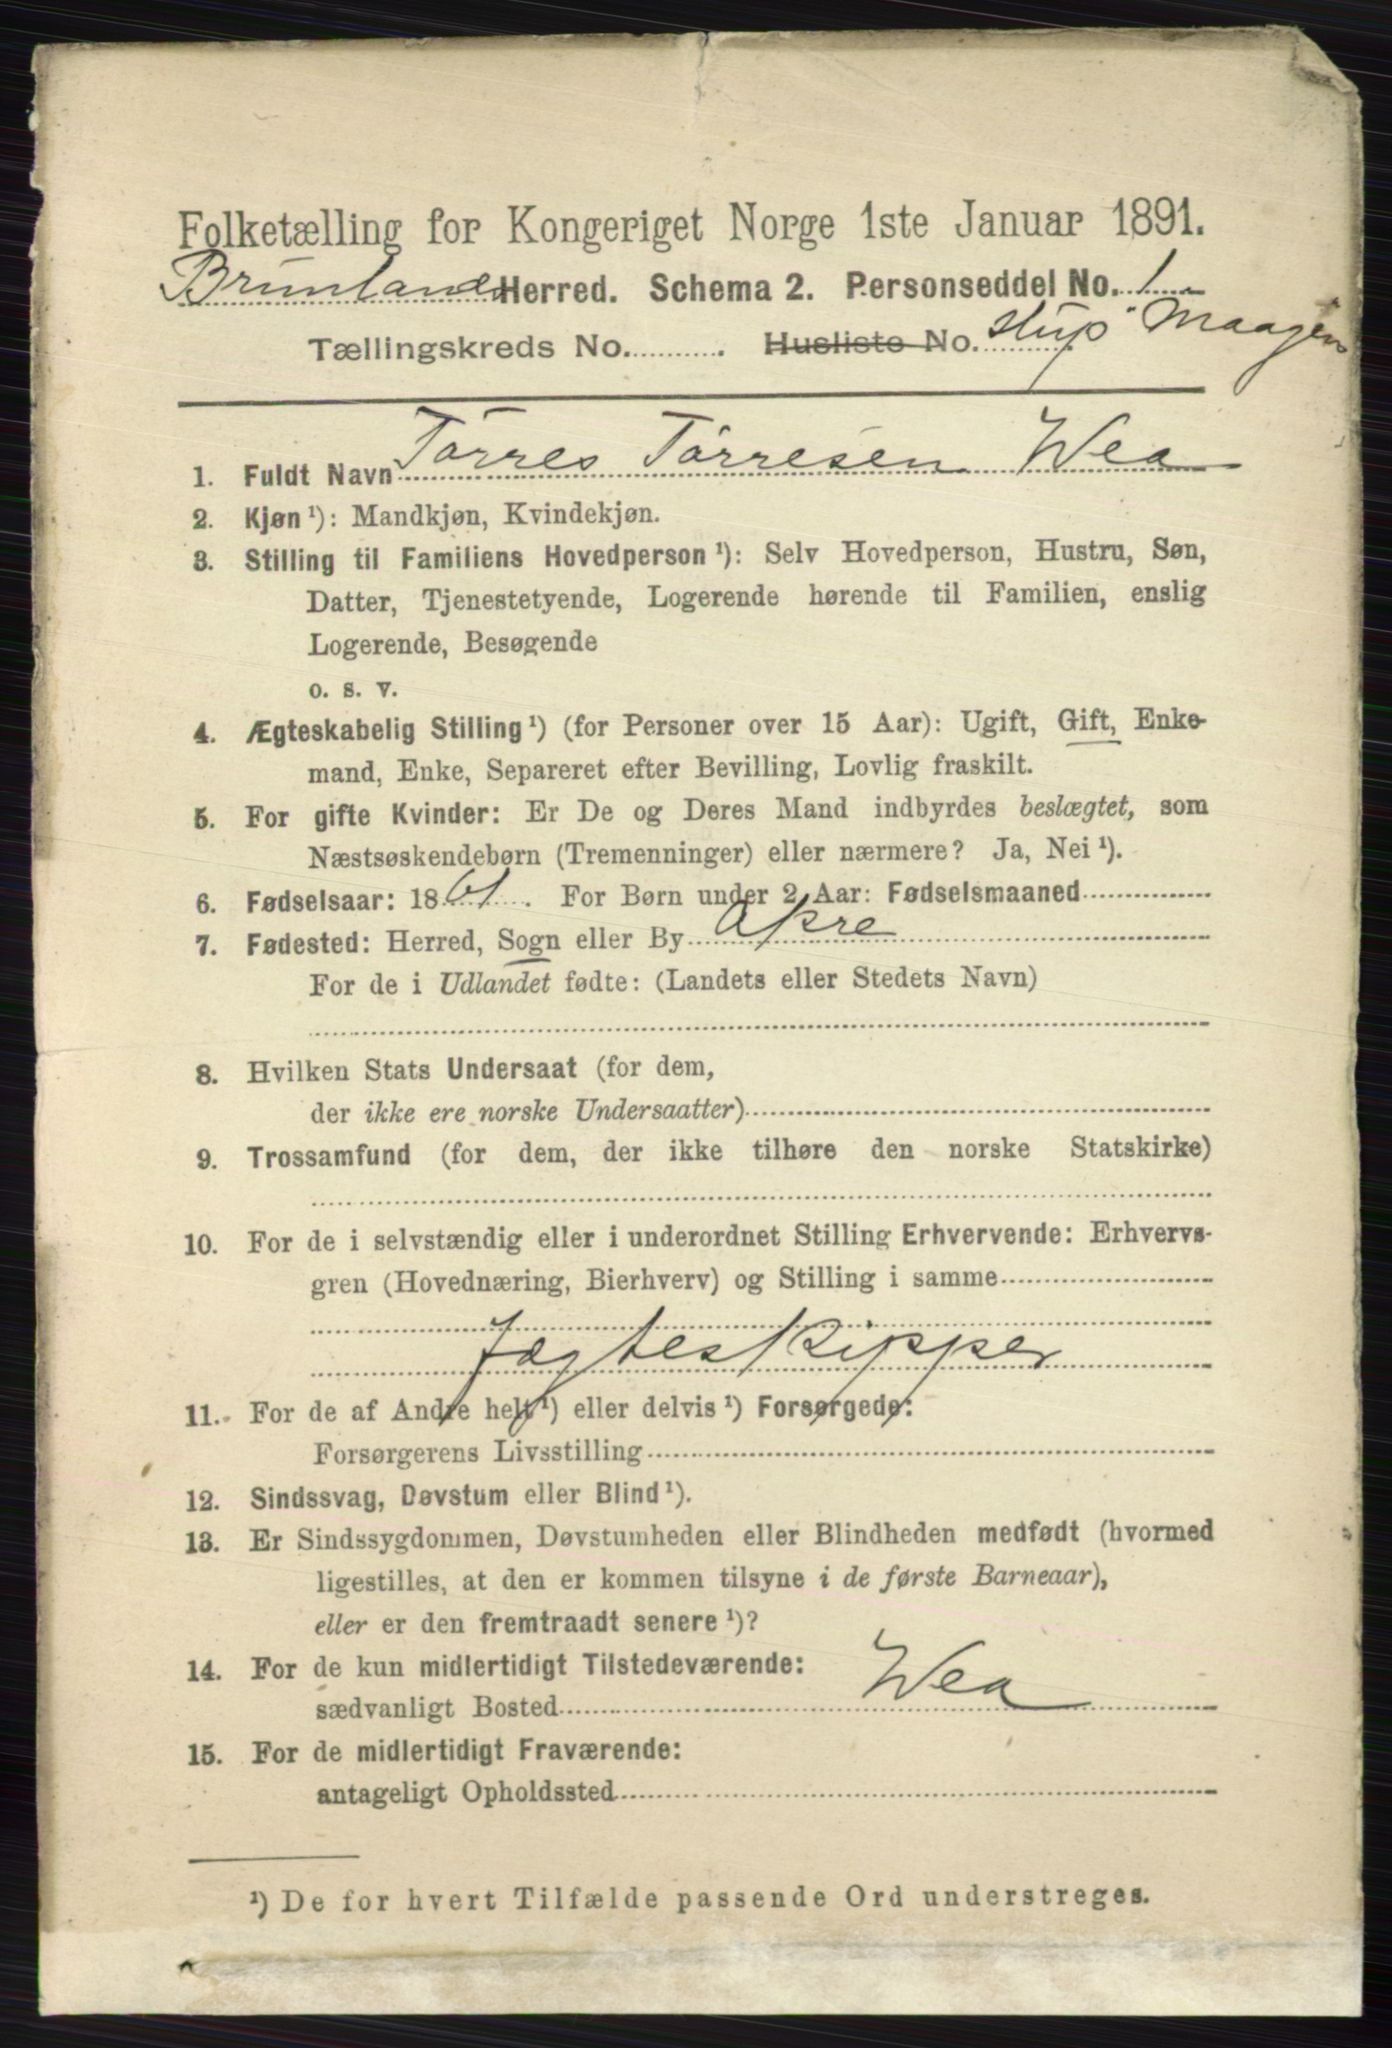 Folketælling for Kongeriget Norge 1ste Januar 1891.
Brunlanes Herred. Schema 2. Personseddel No. 1
Tællingskreds No. . Husliste No. skip "Maagen
1. Fuldt Navn Tørres Tørresen Wea
2. Kjøn ¹): Mandkjøn, Kvindekjøn.
3. Stilling til Familiens Hovedperson ¹): Selv Hovedperson, Hustru, Søn,
Datter, Tjenestetyende, Logerende hørende til Familien, enslig
Logerende, Besøgende
o. s. v.
4. Ægteskabelig Stilling ¹) (for Personer over 15 Aar): Ugift, Gift, Enke-
mand, Enke, Separeret efter Bevilling, Lovlig fraskilt.
5. For gifte Kvinder: Er De og Deres Mand indbyrdes beslægtet, som
Næstsøskendebørn (Tremenninger) eller nærmere? Ja, Nei ¹).
6. Fødselsaar: 1861. For Børn under 2 Aar: Fødselsmaaned
7. Fødested: Herred, Sogn eller By Akre
For de i Udlandet fødte: (Landets eller Stedets Navn)
8. Hvilken Stats Undersaat (for dem,
der ikke ere norske Undersaatter)
9. Trossamfund (for dem, der ikke tilhøre den norske Statskirke)
10. For de i selvstændig eller i underordnet Stilling Erhvervende: Erhvervs-
gren (Hovednæring, Bierhverv) og Stilling i samme
Jægteskipper
11. For de af Andre helt ¹) eller delvis ¹) Forsørgede:
Forsørgerens Livsstilling
12. Sindssvag, Døvstum eller Blind ¹).
13. Er Sindssygdommen, Døvstumheden eller Blindheden medfødt (hvormed
ligestilles, at den er kommen tilsyne i de første Barneaar),
eller er den fremtraadt senere ¹)?
14. For de kun midlertidigt Tilstedeværende:
sædvanligt Bosted Wea
15. For de midlertidigt Fraværende:
antageligt Opholdssted
¹) De for hvert Tilfælde passende Ord understreges.